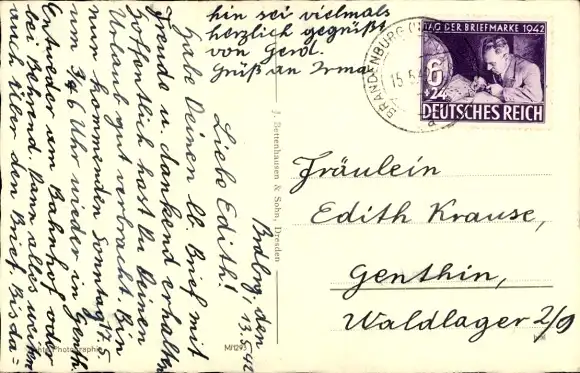 Brdbg, den
13.5.42
Liebe Edith!
Habe Deinen lb. Brief mit
Freude u. dankend erhalten
hoffentlich hast Du Deinen
Urlaub gut verbracht. Bin
nun kommenden Sonntag 17.5.
um 3/4 6 Uhr wieder in Genth.
Entweder am Bahnhof oder
bei Behrend. Dann alles weitere
auch über den Brief. Bis da=
hin sei vielmals
herzlich gegrüßt
von Gerd.
Gruß an Irma
J. Bettenhausen & Sohn, Dresden
Photographie
M1293
BRANDENBURG
15.5.
TAG DER BRIEFMARKE 1942
6
+24
DEUTSCHES REICH
Fräulein
Edith Krause,
Genthin,
Waldlager 2/9